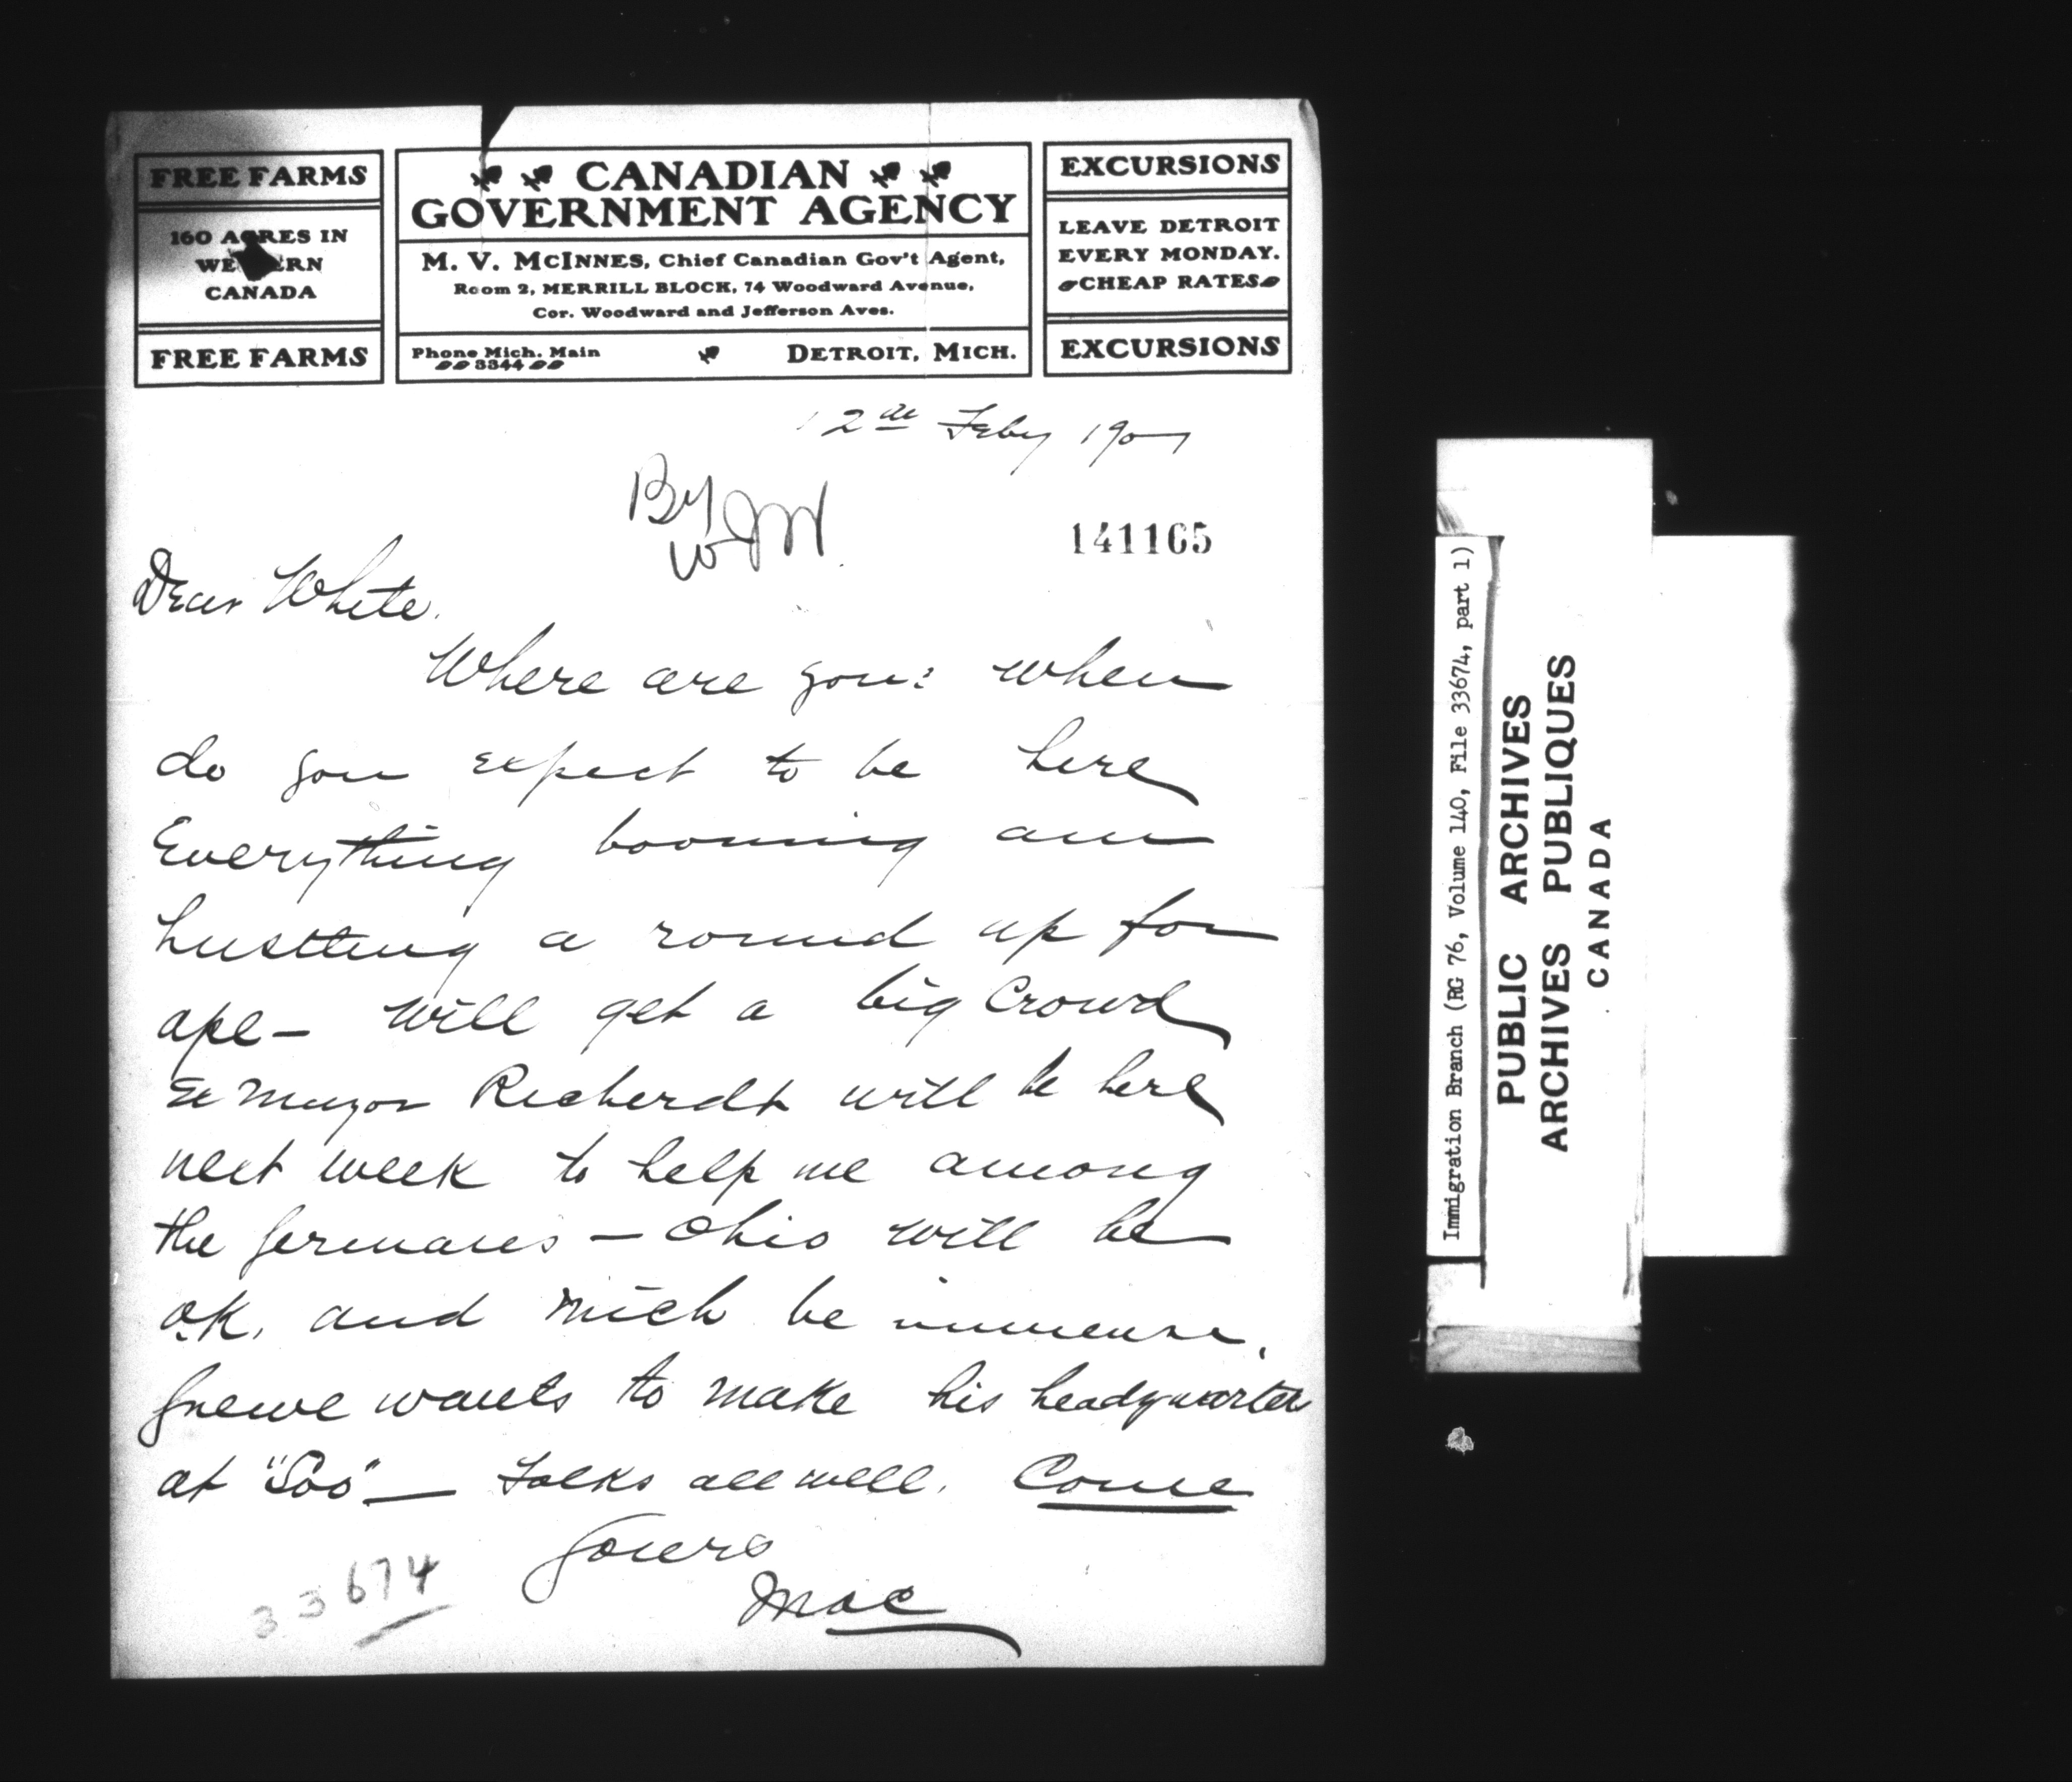 FREE FARMS
160 ACRES IN
WESTERN
CANADA
FREE FARMS
CANADIAN
GOVERNMENT AGENCY
M. V. McINNES, Chief Canadian Gov't Agent,
Room 2, MERRILL BLOCK, 74 Woodward Avenue,
Cor. Woodward and Jefferson Aves.
Phone Mich. Main
3344
DETROIT, MICH.
EXCURSIONS
LEAVE DETROIT
EVERY MONDAY.
CHEAP RATES
EXCURSIONS
12th Feby 190
By
141165
Dear White.
Where are you? when
do you expect to be here
Everything booming am
hustling a round up for
apl— will get a big Crowd
Ex Mayor will be here
next week to help me among
the Germans — Ohio will be
O.K. and Mich be immense.
wants to make his headquarters
at "Soo" — Folks all well. Come
Yours
Mac
33674
Immigration Branch (RG 76, Volume 140, File 33674, part 1)
PUBLIC ARCHIVES
ARCHIVES PUBLIQUES
CANADA